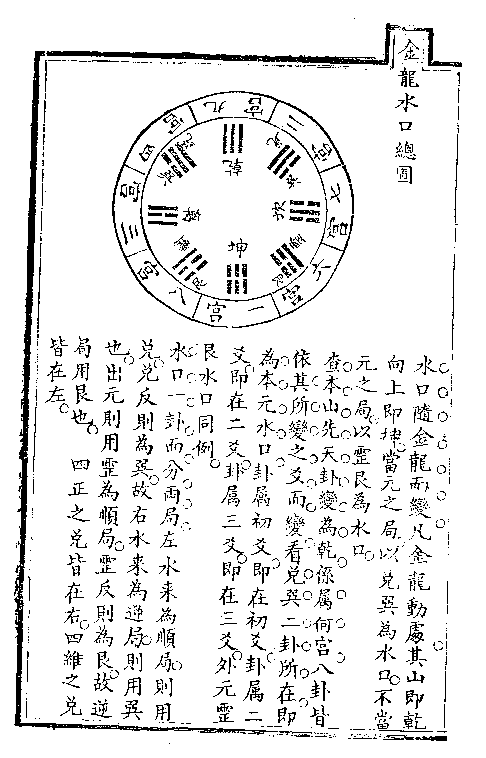 金龍水口總圖
九宮
二宮
七宮
六宮
一宮
八宮
三宮
四宮
乾
坎
坤
離
水口隨金龍而變凡金龍動處其山即乾
向上即坤當元之局以兌巽為水口不當
元之局以震艮為水口
查本山先天卦變為乾係屬何宮八卦皆
依其所變之爻而變看兌巽二卦所在即
為本元水口卦屬初爻即在初爻卦屬二
爻即在二爻卦屬三爻即在三爻外元震
艮水口同例
水口一卦而分兩局左水來為順局則用
兌兌反則為巽故右水來為逆局則用巽
也出元則用震為順局震反則為艮故逆
局用艮也 四正之兌皆在右四維之兌
皆在左